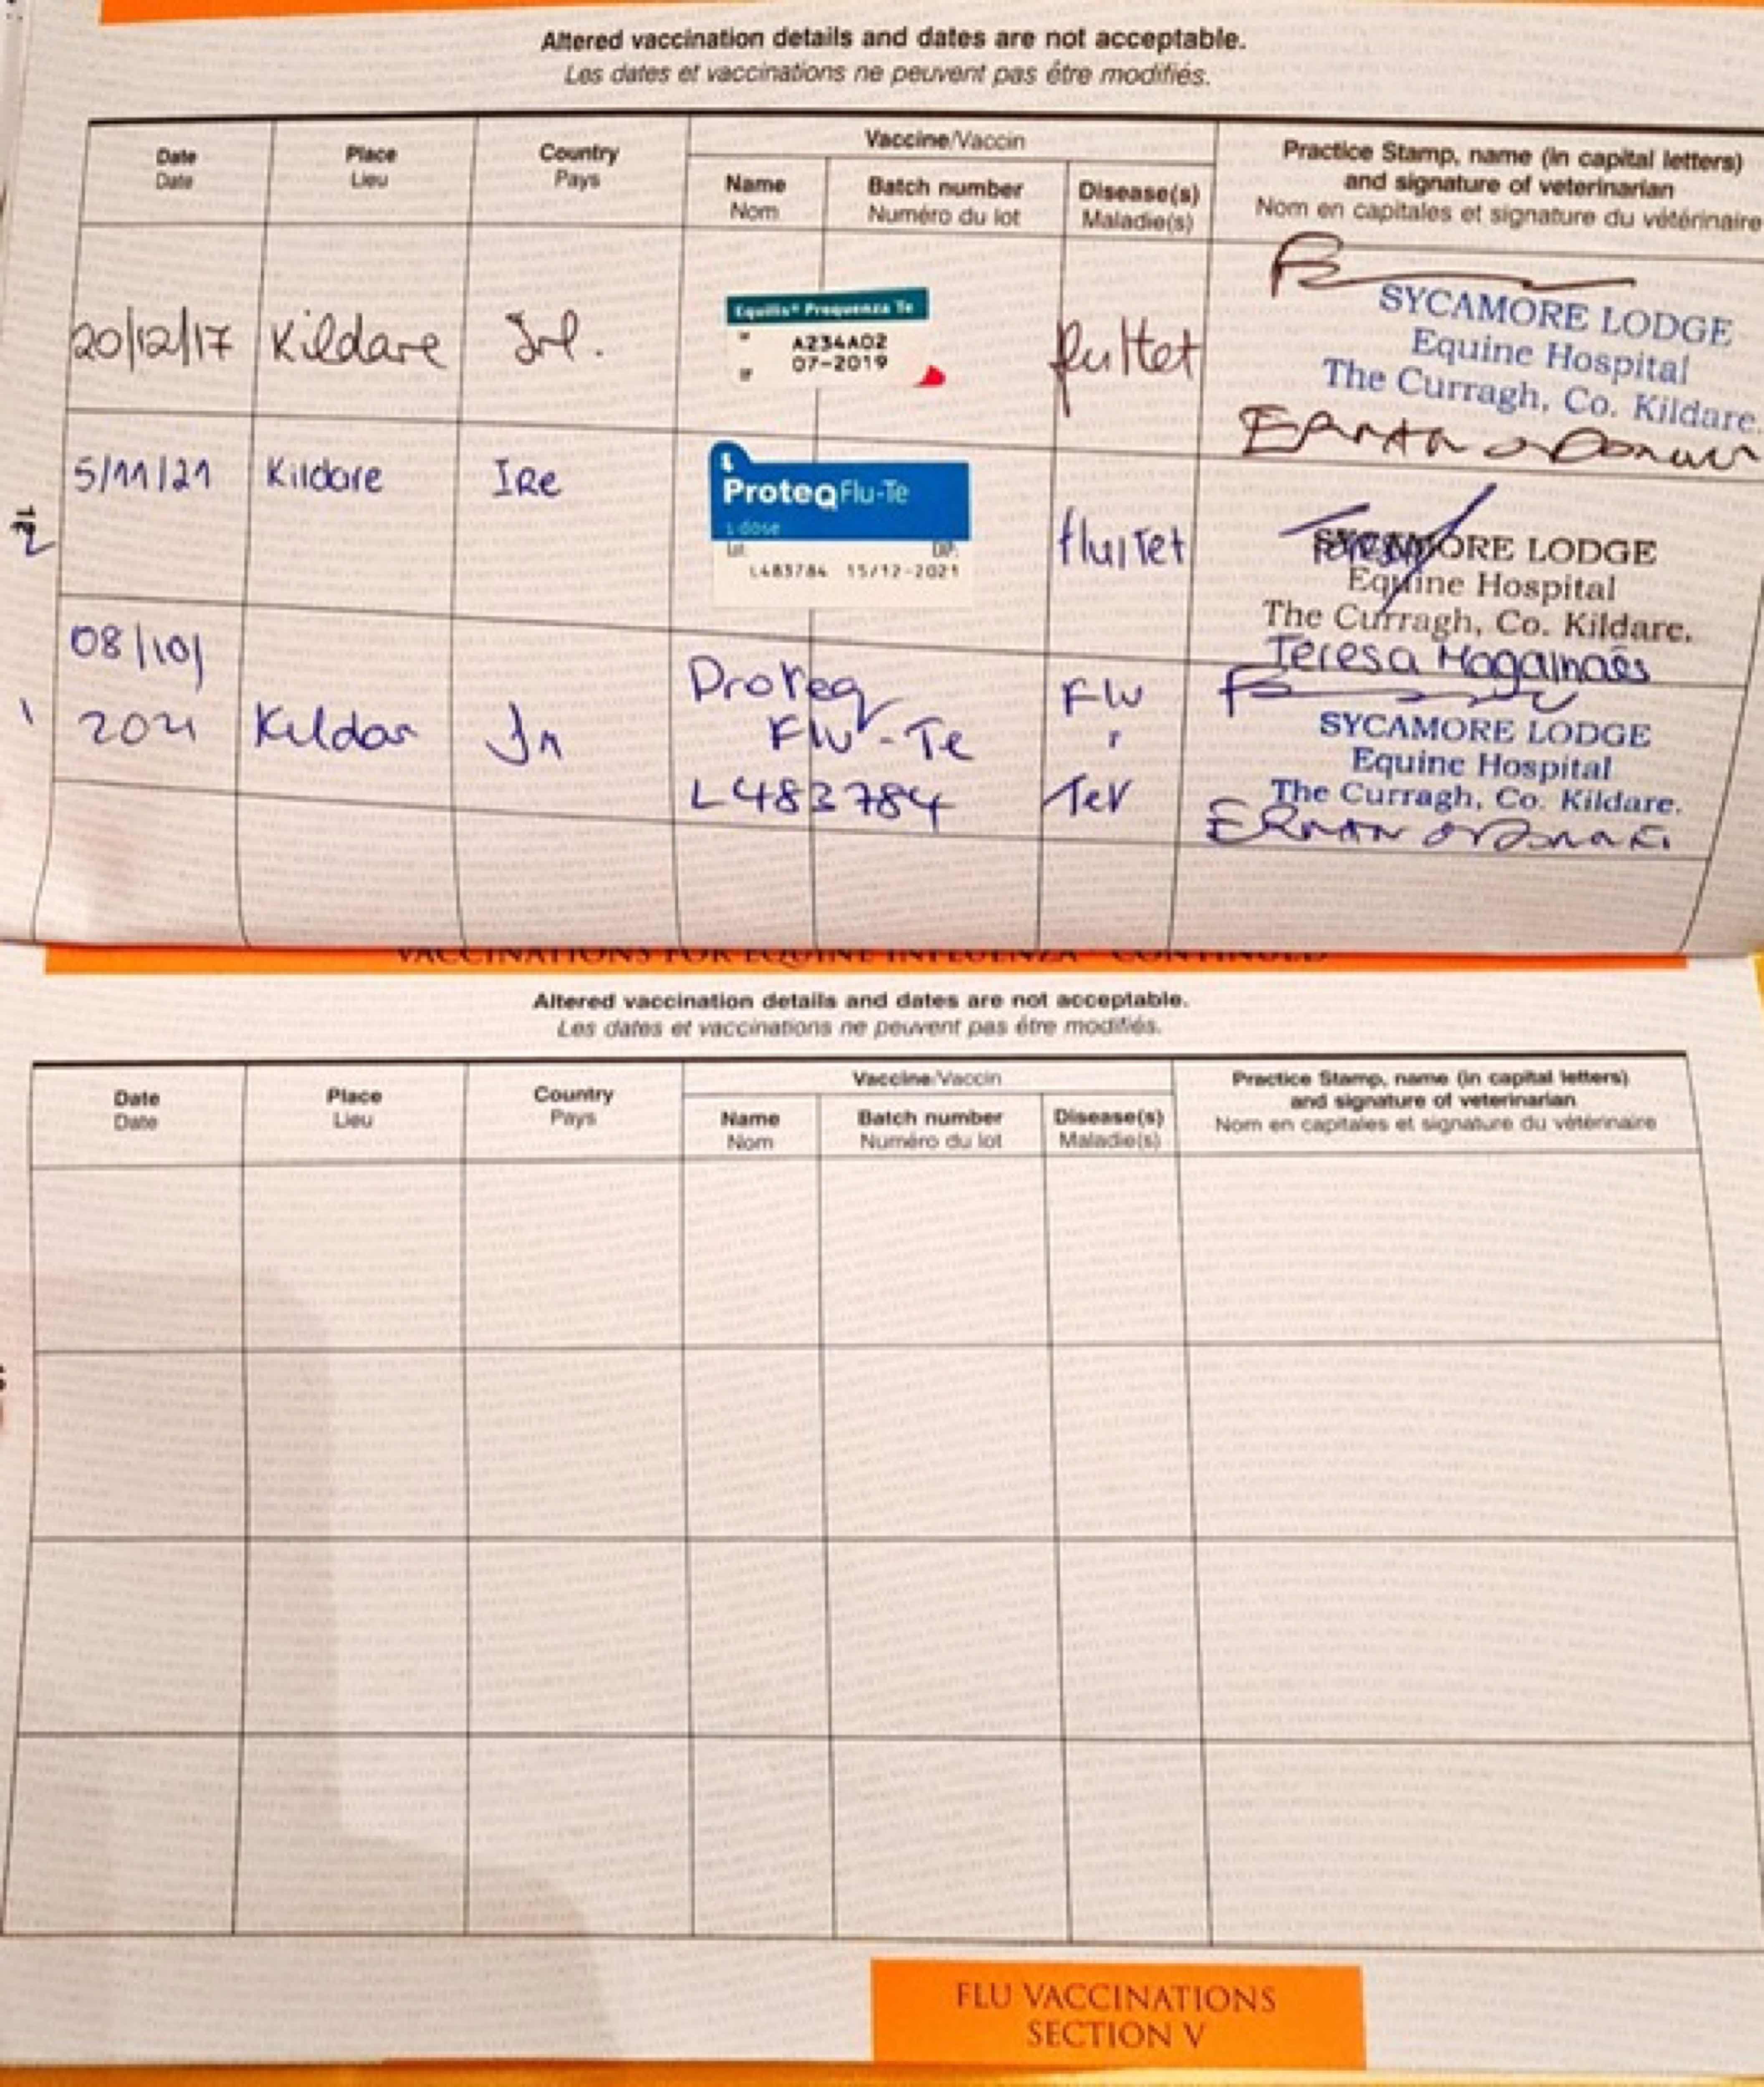 Altered vaccination details and dates are not acceptable.
Les dates et vaccinations ne peuvent pas être modifiés.
Date
Date
Place
Lieu
Country
Pays
Vaccine/Vaccin
Name
Nom
Batch number
Numéro du lot
Disease(s)
Maladie(s)
Practice Stamp, name (in capital letters)
and signature of veterinarian
Nom en capitales et signature du vétérinaire
20/12/17
Kildare
Irl.
Equilis® Prequenza Te
A234A02
07-2019
SYCAMORE LODGE
Equine Hospital
The Curragh, Co. Kildare.
5/11/21
Kildare
IRe
ProteqFlu-Te
1 dose
L483784 15/12-2021
flu/Tet
SYCAMORE LODGE
Equine Hospital
The Curragh, Co. Kildare.
Teresa Magalhaes
08/10/
2021
Kildar
Proteq
Flu-Te
L483784
Flu
SYCAMORE LODGE
Equine Hospital
The Curragh, Co. Kildare.
VACCINATIONS FOR EQUINE INFLUENZA - CONTINUED
Altered vaccination details and dates are not acceptable.
Les dates et vaccinations ne peuvent pas être modifiés.
Date
Date
Place
Lieu
Country
Pays
Vaccine/Vaccin
Name
Nom
Batch number
Numéro du lot
Disease(s)
Maladie(s)
Practice Stamp, name (in capital letters)
and signature of veterinarian
Nom en capitales et signature du vétérinaire
FLU VACCINATIONS
SECTION V